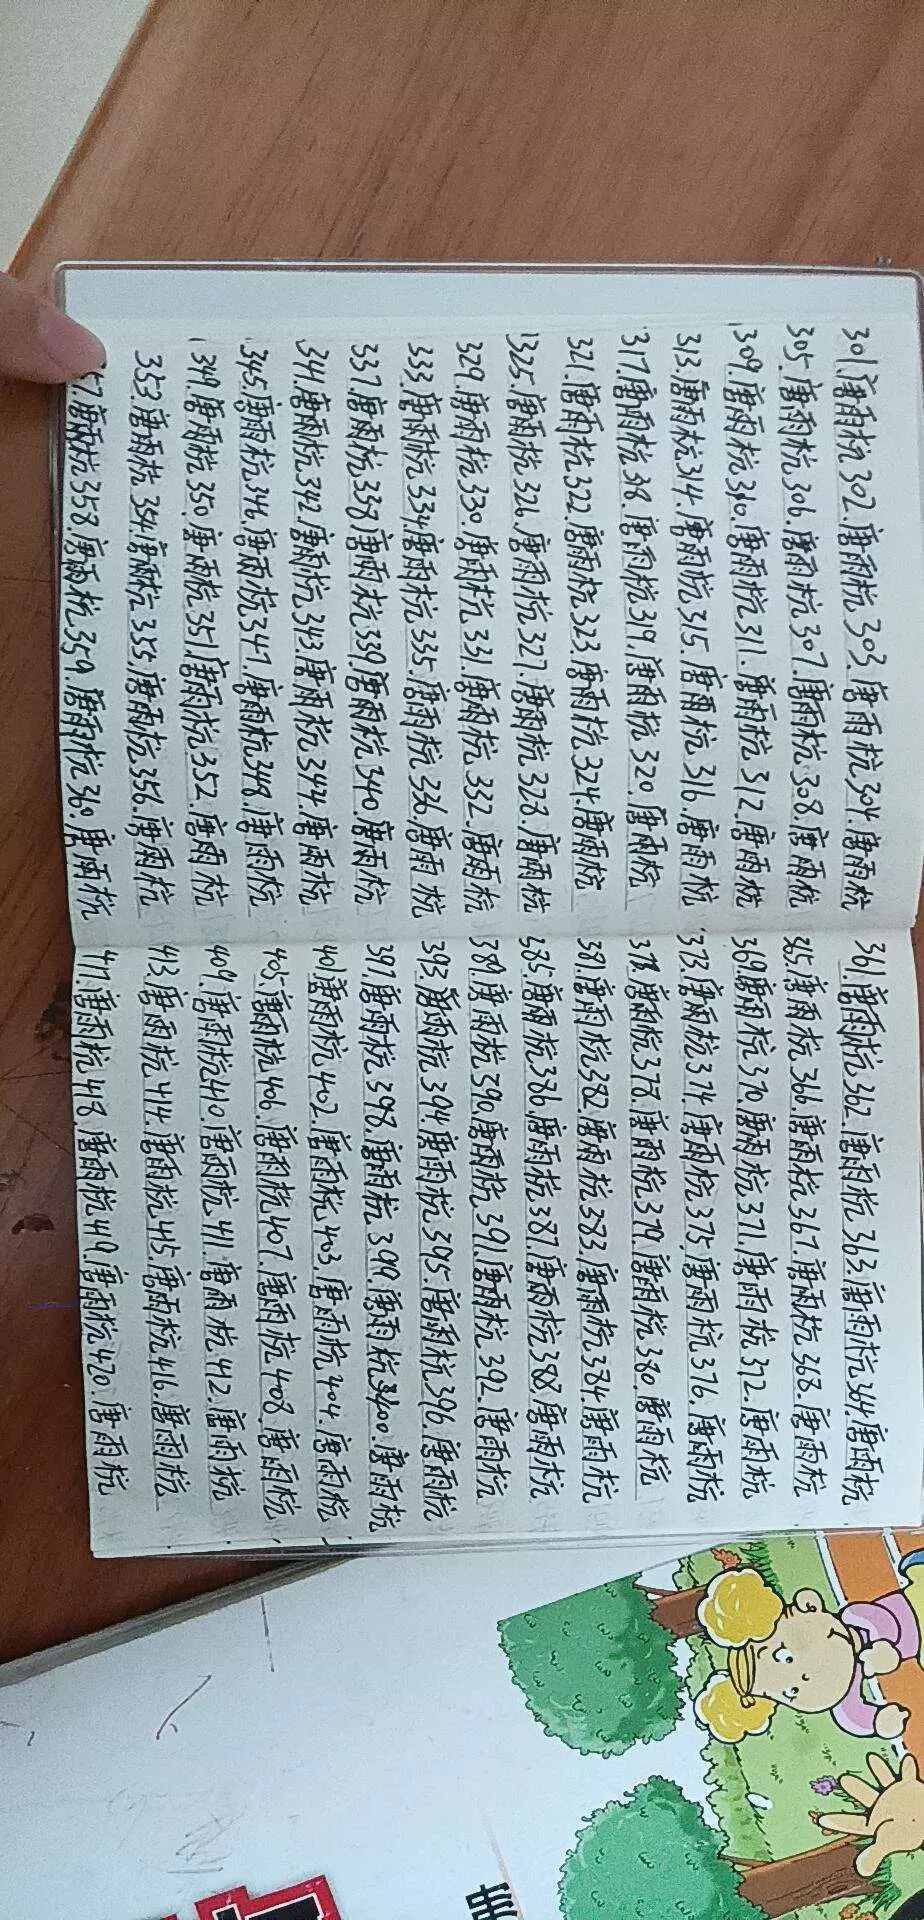 301.唐雨杭 302.唐雨杭 303.唐雨杭 304.唐雨杭
305.唐雨杭 306.唐雨杭 307.唐雨杭 308.唐雨杭
309.唐雨杭 310.唐雨杭 311.唐雨杭 312.唐雨杭
313.唐雨杭 314.唐雨杭 315.唐雨杭 316.唐雨杭
317.唐雨杭 38.唐雨杭 319.唐雨杭 320.唐雨杭
321.唐雨杭 322.唐雨杭 323.唐雨杭 324.唐雨杭
325.唐雨杭 326.唐雨杭 327.唐雨杭 328.唐雨杭
329.唐雨杭 330.唐雨杭 331.唐雨杭 332.唐雨杭
333.唐雨杭 334.唐雨杭 335.唐雨杭 336.唐雨杭
337.唐雨杭 338.唐雨杭 339.唐雨杭 340.唐雨杭
341.唐雨杭 342.唐雨杭 343.唐雨杭 344.唐雨杭
345.唐雨杭 346.唐雨杭 347.唐雨杭 348.唐雨杭
349.唐雨杭 350.唐雨杭 351.唐雨杭 352.唐雨杭
353.唐雨杭 354.唐雨杭 355.唐雨杭 356.唐雨杭
7.唐雨杭 358.唐雨杭 359.唐雨杭 360.唐雨杭
361.唐雨杭 362.唐雨杭 363.唐雨杭 364.唐雨杭
365.唐雨杭 366.唐雨杭 367.唐雨杭 368.唐雨杭
369.唐雨杭 370.唐雨杭 371.唐雨杭 372.唐雨杭
373.唐雨杭 374.唐雨杭 375.唐雨杭 376.唐雨杭
377.唐雨杭 378.唐雨杭 379.唐雨杭 380.唐雨杭
381.唐雨杭 382.唐雨杭 383.唐雨杭 384.唐雨杭
385.唐雨杭 386.唐雨杭 387.唐雨杭 388.唐雨杭
389.唐雨杭 390.唐雨杭 391.唐雨杭 392.唐雨杭
393.唐雨杭 394.唐雨杭 395.唐雨杭 396.唐雨杭
397.唐雨杭 398.唐雨杭 399.唐雨杭 3400.唐雨杭
401.唐雨杭 402.唐雨杭 403.唐雨杭 404.唐雨杭
405.唐雨杭 406.唐雨杭 407.唐雨杭 408.唐雨杭
409.唐雨杭 410.唐雨杭 411.唐雨杭 412.唐雨杭
413.唐雨杭 414.唐雨杭 415.唐雨杭 416.唐雨杭
417.唐雨杭 418.唐雨杭 419.唐雨杭 420.唐雨杭
册